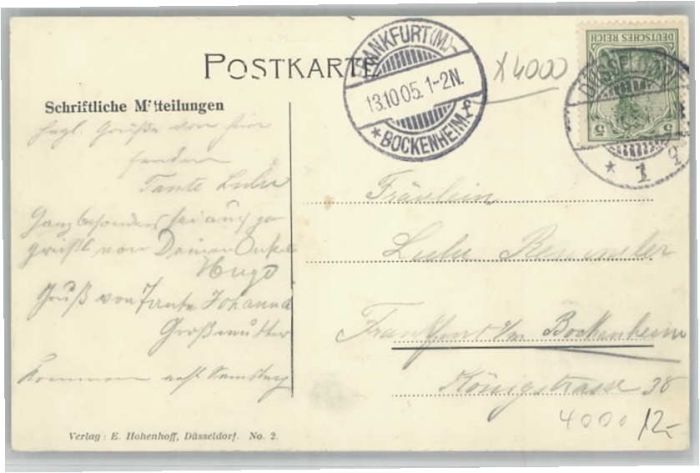 POSTKARTE
Schriftliche Mitteilungen
FRANKFURT (M)-
13.10 05. 1-2N.
* BOCKENHEIM.
X4000
DEUTSCHES REICH
5 5
DÜSSELDORF
* 1
Grüße von hier
senden
Tante Lulu
Ganz besonders sei auch ge
grüßt von Deinem Onkel
Hugo
Gruß von Tante Johanna
Großmutter
Kommen erst Samstag
Fräulein
Lulu
Frankfurt a/m Bockenheim
Königstrasse 38
4000 12-
Verlag: E. Hohenhoff, Düsseldorf. No. 2.